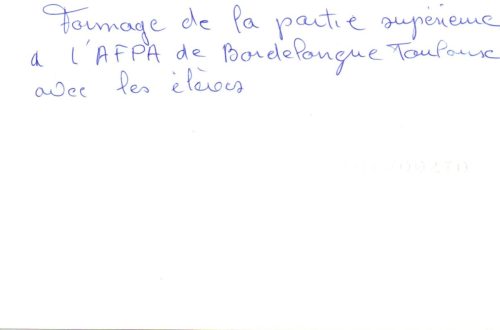 Formage de la partie supérieure
a l'AFPA de Bordelongue Toulouse
avec les élèves